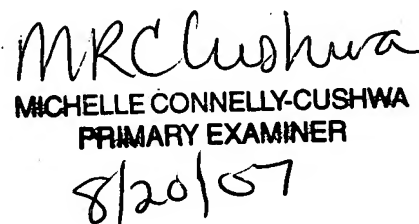 MRCCushwa
MICHELLE CONNELLY-CUSHWA
PRIMARY EXAMINER
8/20/07